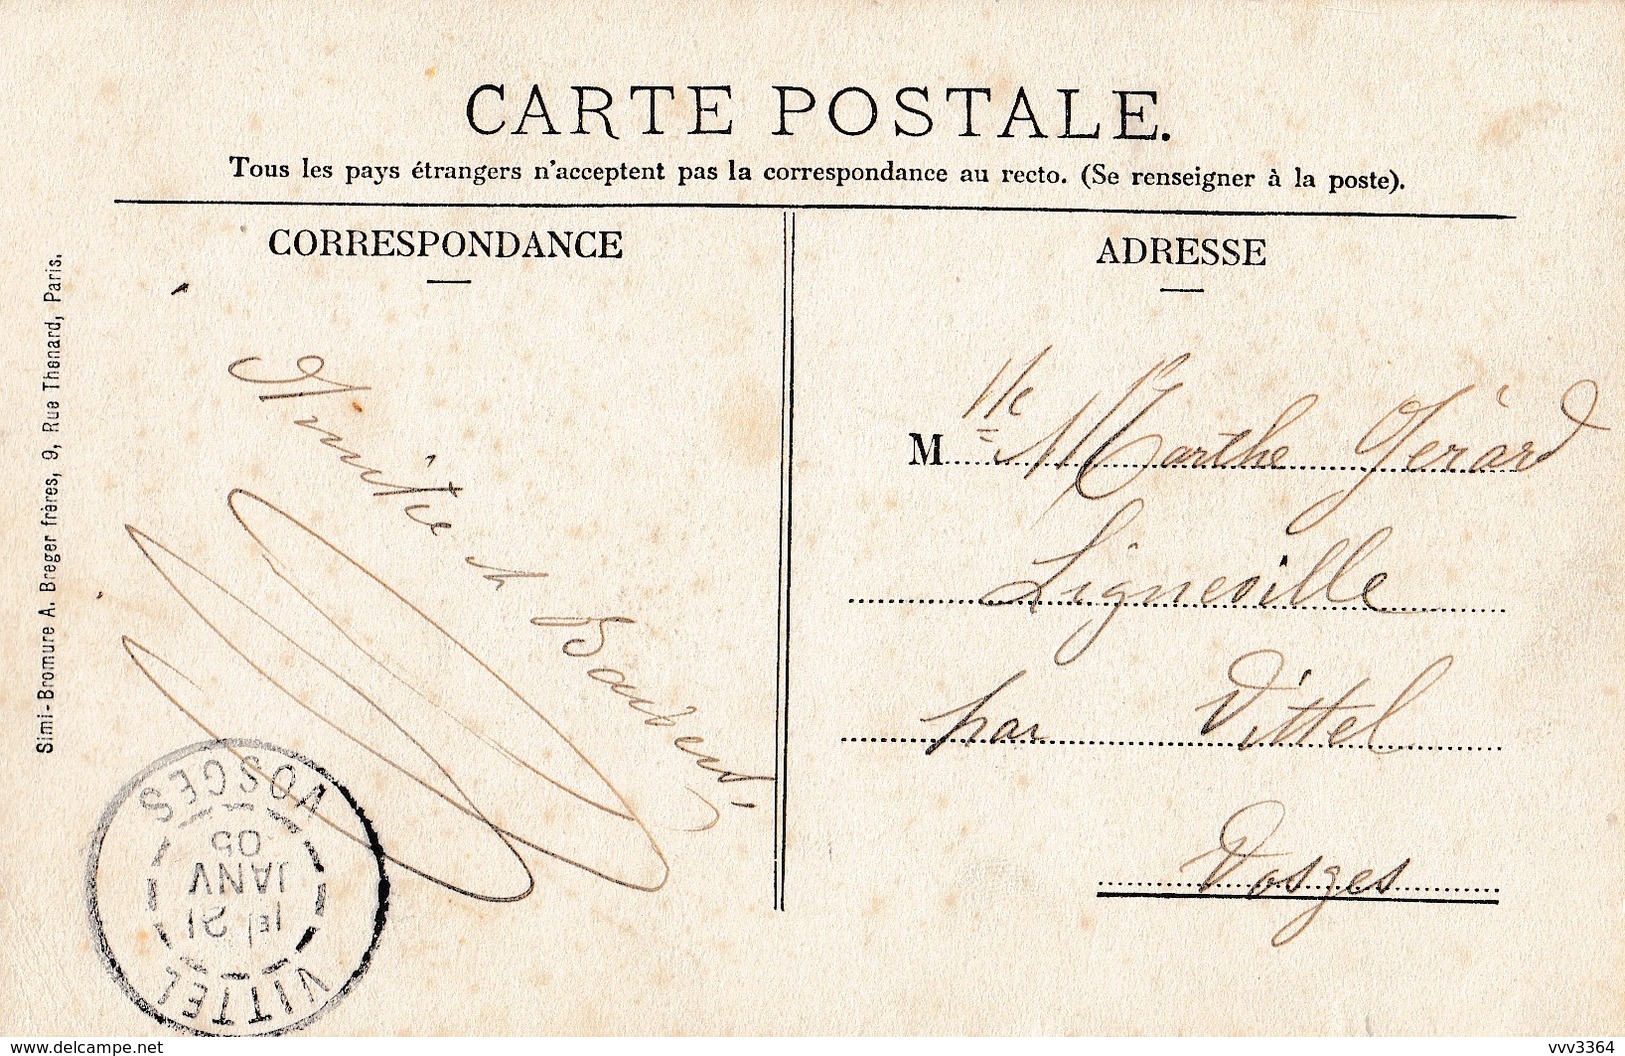 CARTE POSTALE.
Tous les pays étrangers n'acceptent pas la correspondance au recto. (Se renseigner à la poste).
CORRESPONDANCE
ADRESSE
Simi-Bromure A. Breger frères, 9, Rue Thenard, Paris.
Amitié
M lle Marthe Gérard
Ligneville
par Vittel
Vosges
VITTEL
1e/ 21
JANV
05
VOSGES
www.delcampe.net
vvv3364